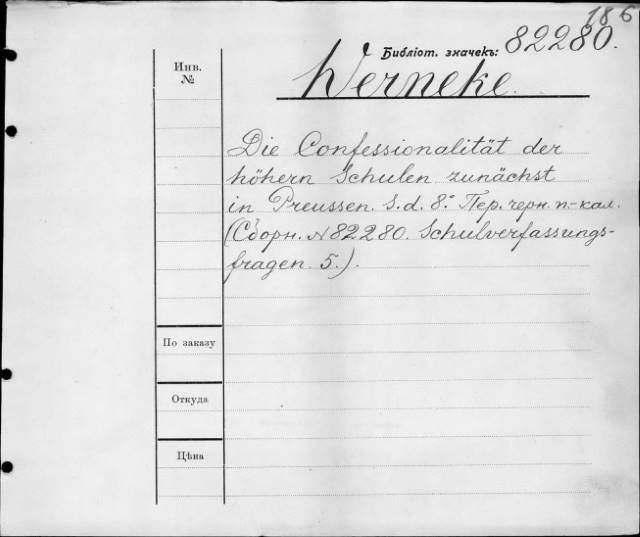 186
Библіот. значекъ: 82280.
Инв.
№
Werneke.
Die Confessionalität der
höhern Schulen zunächst
in Preussen. S.d. 8º. Пер. черн. п.-кал.
(Сборн. № 82280. Schulverfassungs-
fragen. 5.).
По заказу
Откуда
Цѣна